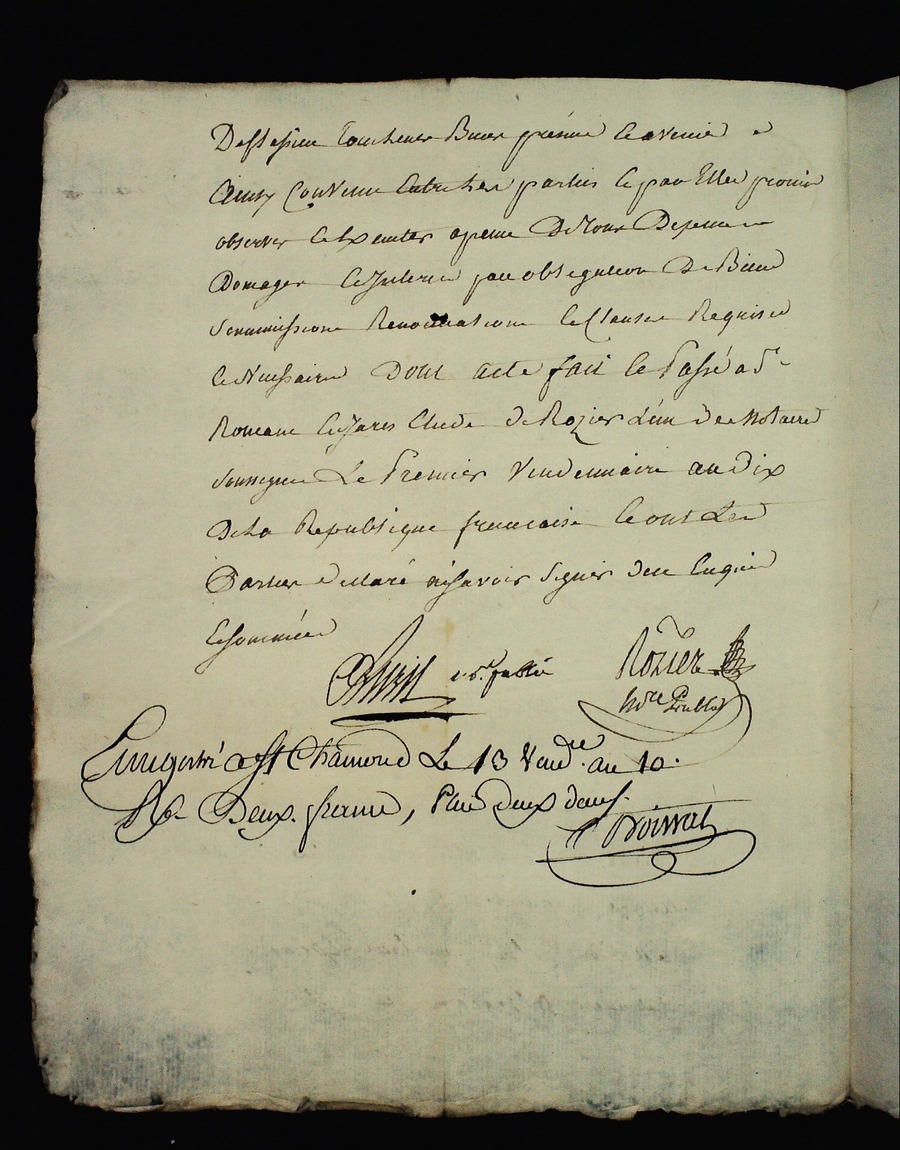 tous leurs Biens présens et avenir
Ainsy Convenu Entre les parties et par Elles promis
observer et Executer apeine De Tous Depens
Domages et Interets par obligation De Biens
Soumissions Renonciations et Clauses Requises
et Necessaires Dont acte fait et Passé a St
Romain en Jarez Etude De Rozier L'un des Notaires
soussignés Le Premier Vendemiaire an Dix
De La Republique francaise et ont Les
Parties declaré ne savoir signer de ce Enquis
Et sommés
Rozier
Nore Public
Enregistré a St Chamond Le 13 Vend.re an 10.
R. Deux francs, Plus deux decs.